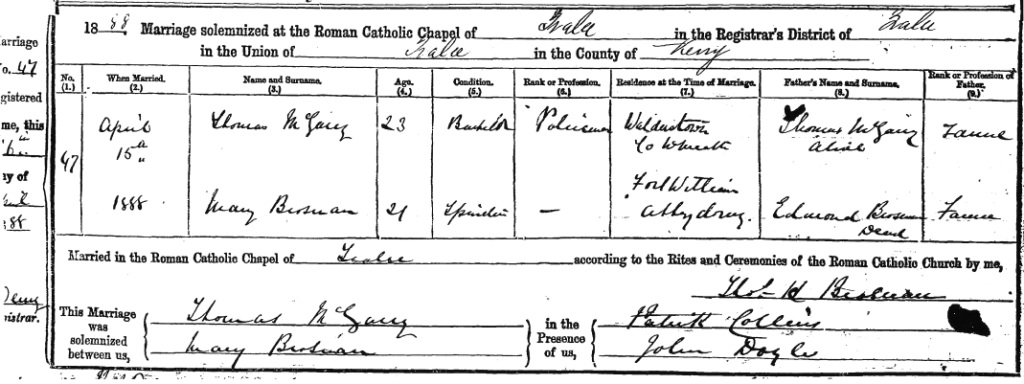 1888. Marriage solemnized at the Roman Catholic Chapel of Tralee in the Registrar's District of Tralee
in the Union of Tralee in the County of Kerry
arriage
o. 47
gistered
me, this
y of
88
nistrar.
No. (1.) When Married. (2.) Name and Surname. (3.) Age. (4.) Condition. (5.) Rank or Profession. (6.) Residence at the Time of Marriage. (7.) Father's Name and Surname. (8.) Rank or Profession of Father. (9.)
47
April 15th 1888
Thomas McGarry 23 Bachelor Policeman Co Thomas McGarry alive Farmer
Mary Brosnan 21 Spinster — Fort William Edmond Brosnan Dead Farmer
Married in the Roman Catholic Chapel of Tralee according to the Rites and Ceremonies of the Roman Catholic Church by me,
Brosnan
This Marriage was solemnized between us,
Thomas McGarry
Mary Brosnan
in the Presence of us,
Patrick Collins
John Doyle